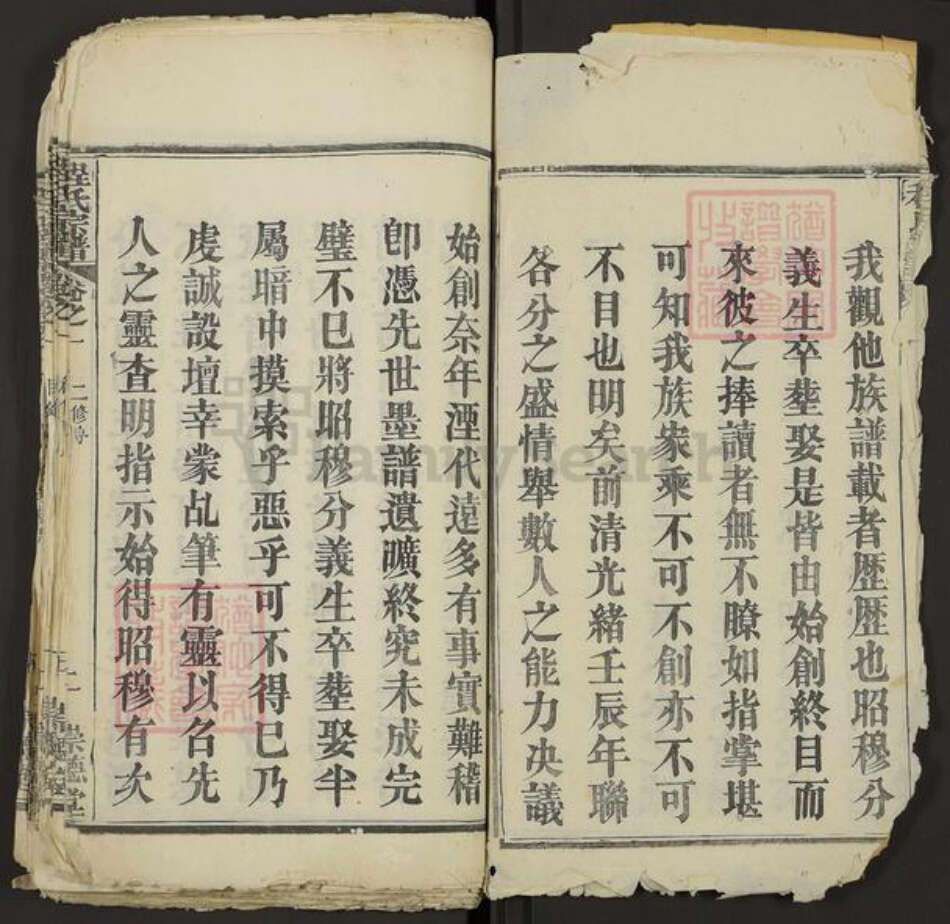 我觀他族譜載者歷歷也昭穆分
義生卒塟娶是皆由始創終目而
來彼之捧讀者無不瞭如指掌堪
可知我族家乘不可不創亦不可
不目也明矣前清光緒壬辰年聯
各分之盛情舉數人之能力决議
始創奈年湮代遠多有事實難稽
卽憑先世墨譜遺曠終究未成完
璧不巳將昭穆分義生卒塟娶半
屬暗中摸索乎惡乎可不得巳乃
虔誠設壇幸蒙乩筆有靈以名先
人之靈查明指示始得昭穆有次
程氏宗譜
卷之一
二修
崇德堂
familysearch